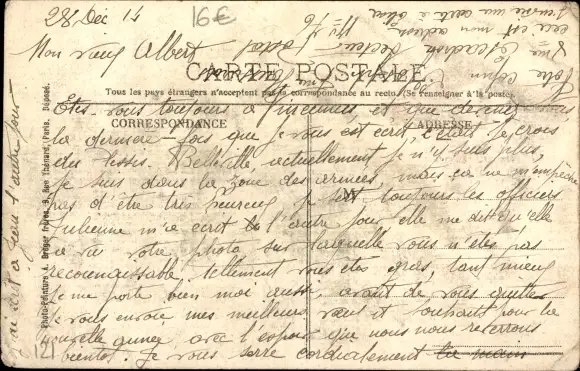 28 Déc 14
16€
Mon vieux Albert
CARTE POSTALE
Tous les pays étrangers n'acceptent pas la correspondance au recto. (Se renseigner à la poste).
CORRESPONDANCE
ADRESSE
Êtes-vous toujours à Vincennes, et que
la dernière fois que je vous est écrit, je crois
du Plessis-Belleville actuellement je n'y suis plus,
je suis dans la zone des armées, mais ça ne m'empêche
pas d'être très heureux je sers toujours les officiers
Julienne m'a écrit l'autre jour elle me dit qu'elle
a vu votre photo sur laquelle vous n'êtes pas
reconnaissable tellement vous êtes gras, tant mieux
je me porte bien moi aussi, avant de vous quitter
je vous envoie mes meilleurs vœux et souhaits pour la
nouvelle année avec l'espoir que nous nous reverrons
bientôt. Je vous serre cordialement la main
121
Photo-Peinture A. Breger frères, 9, Rue Thénard, Paris. Déposé.
l'autre jour
ceci est mon adresse